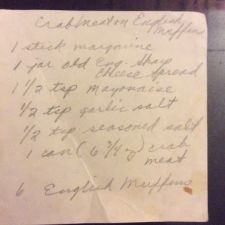 Crabmeat on English
Muffins
1 stick margarine
1 jar Old Eng. Sharp
Cheese Spread
1 1/2 tsp mayonaise
1/2 tsp garlic salt
1/2 tsp seasoned salt
1 can (6 3/4 oz) crab
meat
6 English Muffins